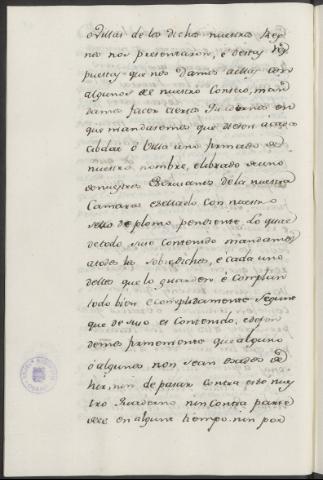 o Villas de los dichos nuestros Rey
nos nos presentaron, e destas rẽs
puestas que nos damos a ellas con
algunos de nuestro Consejo, man
damos facer ciertos Quadernos en
que mandasemos que diesen a cada
cibdad o Villa uno firmado de
nuestro nombre, e librado de uno
de nuestros Escrivanos de la nuestra
Camara e sellado con nuestro
sello de plomo pendiente. Lo qual
de todo suso contenido mandamos
a todos los sobredichos, e cada uno
dellos que lo guarden e complan
todo bien e complidamente segunt
que de suso es contenido, e defen
demos firmemente que alguno
o algunos non sean osados de
her, nin de pasar contra este nues
tro Quaderno nin contra parte
dello en algunt tiempo nin por